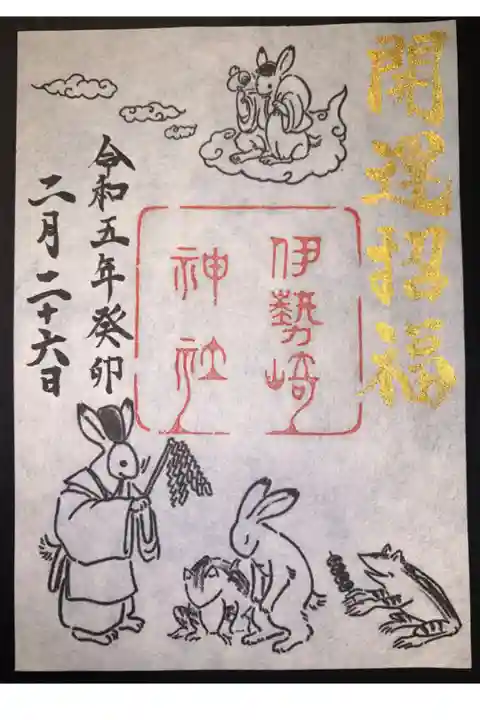 開運招福
伊勢崎
神社
令和五年癸卯
二月二十六日